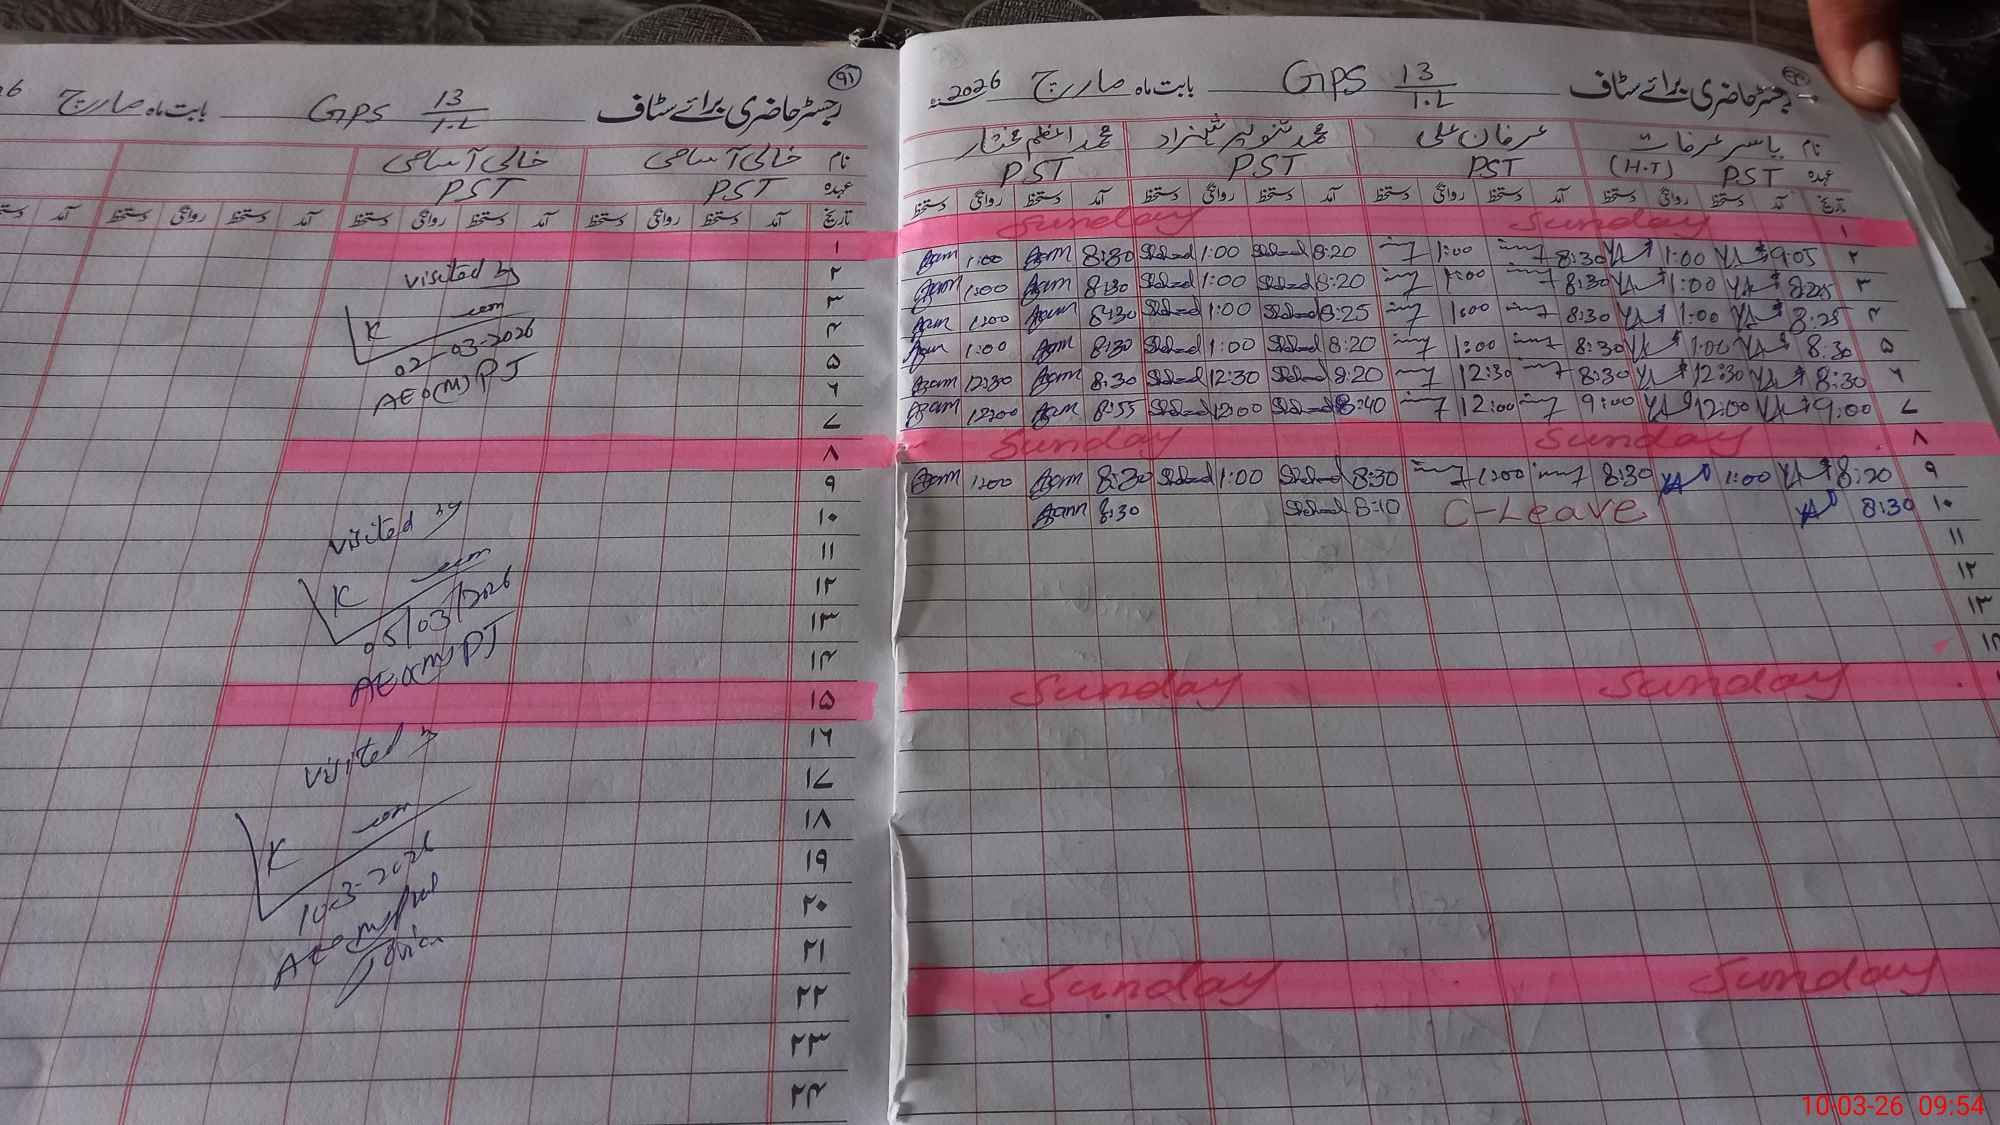 رجسٹر حاضری برائے سٹاف GPS 13/1.L بابت ماہ مارچ 2026
نام یاسر عرفات عرفان علی محمد تنویر شہزاد محمد اعظم مختار
عہدہ PST (H.T) PST PST PST
تاریخ آمد دستخط روانگی دستخط آمد دستخط روانگی دستخط آمد دستخط روانگی دستخط آمد دستخط روانگی دستخط
۱ Sunday Sunday
۲ 9:05 1:00 8:30 1:00 8:20 1:00 8:30 Azam 1:00 Azam
۳ 1:00 8:30 1:00 8:20 1:00 8:30 Azam 1:00 Azam
۴ 8:25 1:00 8:30 1:00 8:25 1:00 8:30 Azam 1:00 Azam
۵ 8:30 1:00 8:30 1:00 8:20 1:00 8:30 Azam 1:00 Azam
۶ 8:30 12:30 8:30 12:30 8:20 12:30 8:30 Azam 12:30 Azam
۷ 9:00 12:00 9:00 12:00 8:40 12:00 8:55 Azam 12:00 Azam
۸ Sunday Sunday
۹ 8:20 1:00 8:30 1:00 8:30 1:00 8:30 Azam 1:00 Azam
۱۰ 8:30 C-Leave 8:10 8:30 Azam
۱۱
۱۲
۱۳
Sunday Sunday
Sunday Sunday
۹۱
رجسٹر حاضری برائے سٹاف GPS 13/1.L بابت ماہ مارچ
نام خالی آسامی خالی آسامی
عہدہ PST PST
تاریخ آمد دستخط روانگی دستخط آمد دستخط روانگی دستخط آمد دستخط روانگی دستخط آمد
۱
۲
۳
۴
۵
۶
۷
۸
۹
۱۰
۱۱
۱۲
۱۳
۱۴
۱۵
۱۶
۱۷
۱۸
۱۹
۲۰
۲۱
۲۲
۲۳
۲۴
visited by
02-03-2026
AEO(M) PJ
visited by
05/03/2026
AEO(M) PJ
visited by
10-3-2026
10-03-26 09:54